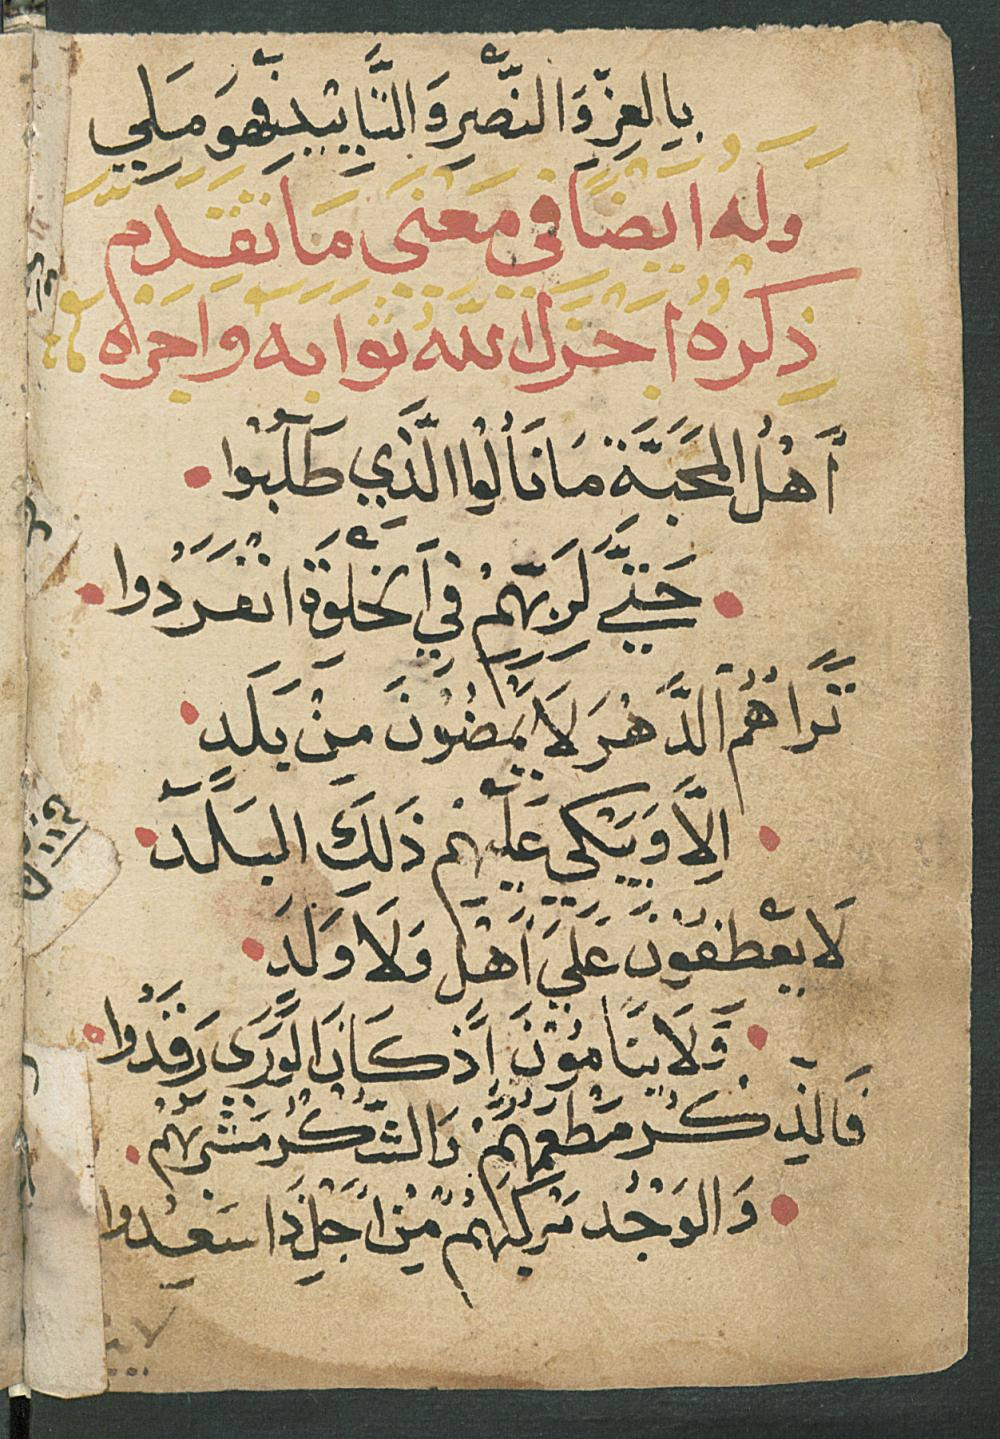 بِالعِزِّ وَالنَّصْرِ وَالتَّايِيْدِ فَهْوَ مَلِي
وَلَهُ ايْضًا فِي مَعْنَى مَا تَقَدَّم
ذِكْرُهُ اجْزَلَ اللّٰهُ ثَوَابَهُ وَاجْرَاه
أَهْلُ المَحَبَّةِ مَا نَالُوا الَّذِي طَلَبُوا
حَتَّي لِرَبِّهِمْ فِي الخَلْوَةِ انْفَرَدُوا
تَرَاهُمُ الدَّهْرَ لَا يَمْضُوْنَ مِنْ بَلَدٍ
اِلَّا وَيَبْكِي عَلَيْهِم ذَلِكَ البَلَدُ
لَا يَعْطِفُوْنَ عَلَي أَهْلٍ وَلَا وَلَدٍ
وَلَا يَنَامُوْنَ إِذْ كَانَ الوَرَى رَقَدُوا
فَالذِّكْرُ مَطْعَمُهُمْ وَالشُّكْرُ مَشْرَبُهُمْ
وَالوَجْدُ مَرْكَبُهُمْ مِنْ أَجْلِ ذَا سَعِدُوا